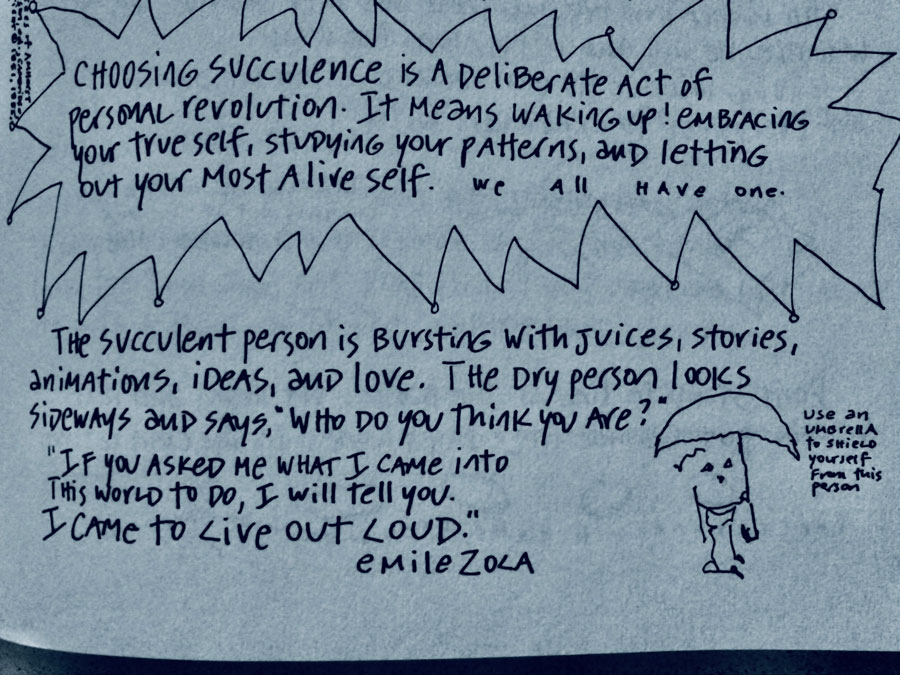 CHOOSING SUCCULENCE is A DeliBerAte Act of
personal revolution. It Means WAKING up! embracing
your true self, studying your patterns, and letting
out your Most Alive self. we All HAve one.
The succulent person is Bursting with Juices, stories,
animations, ideas, and love. The Dry person looks
sideways and says, "Who Do you think you Are?"
use an
umbrella
to shield
yourself
from this
person
"If you asked me what I came into
This world to do, I will tell you.
I came to Live out Loud."
emile Zola